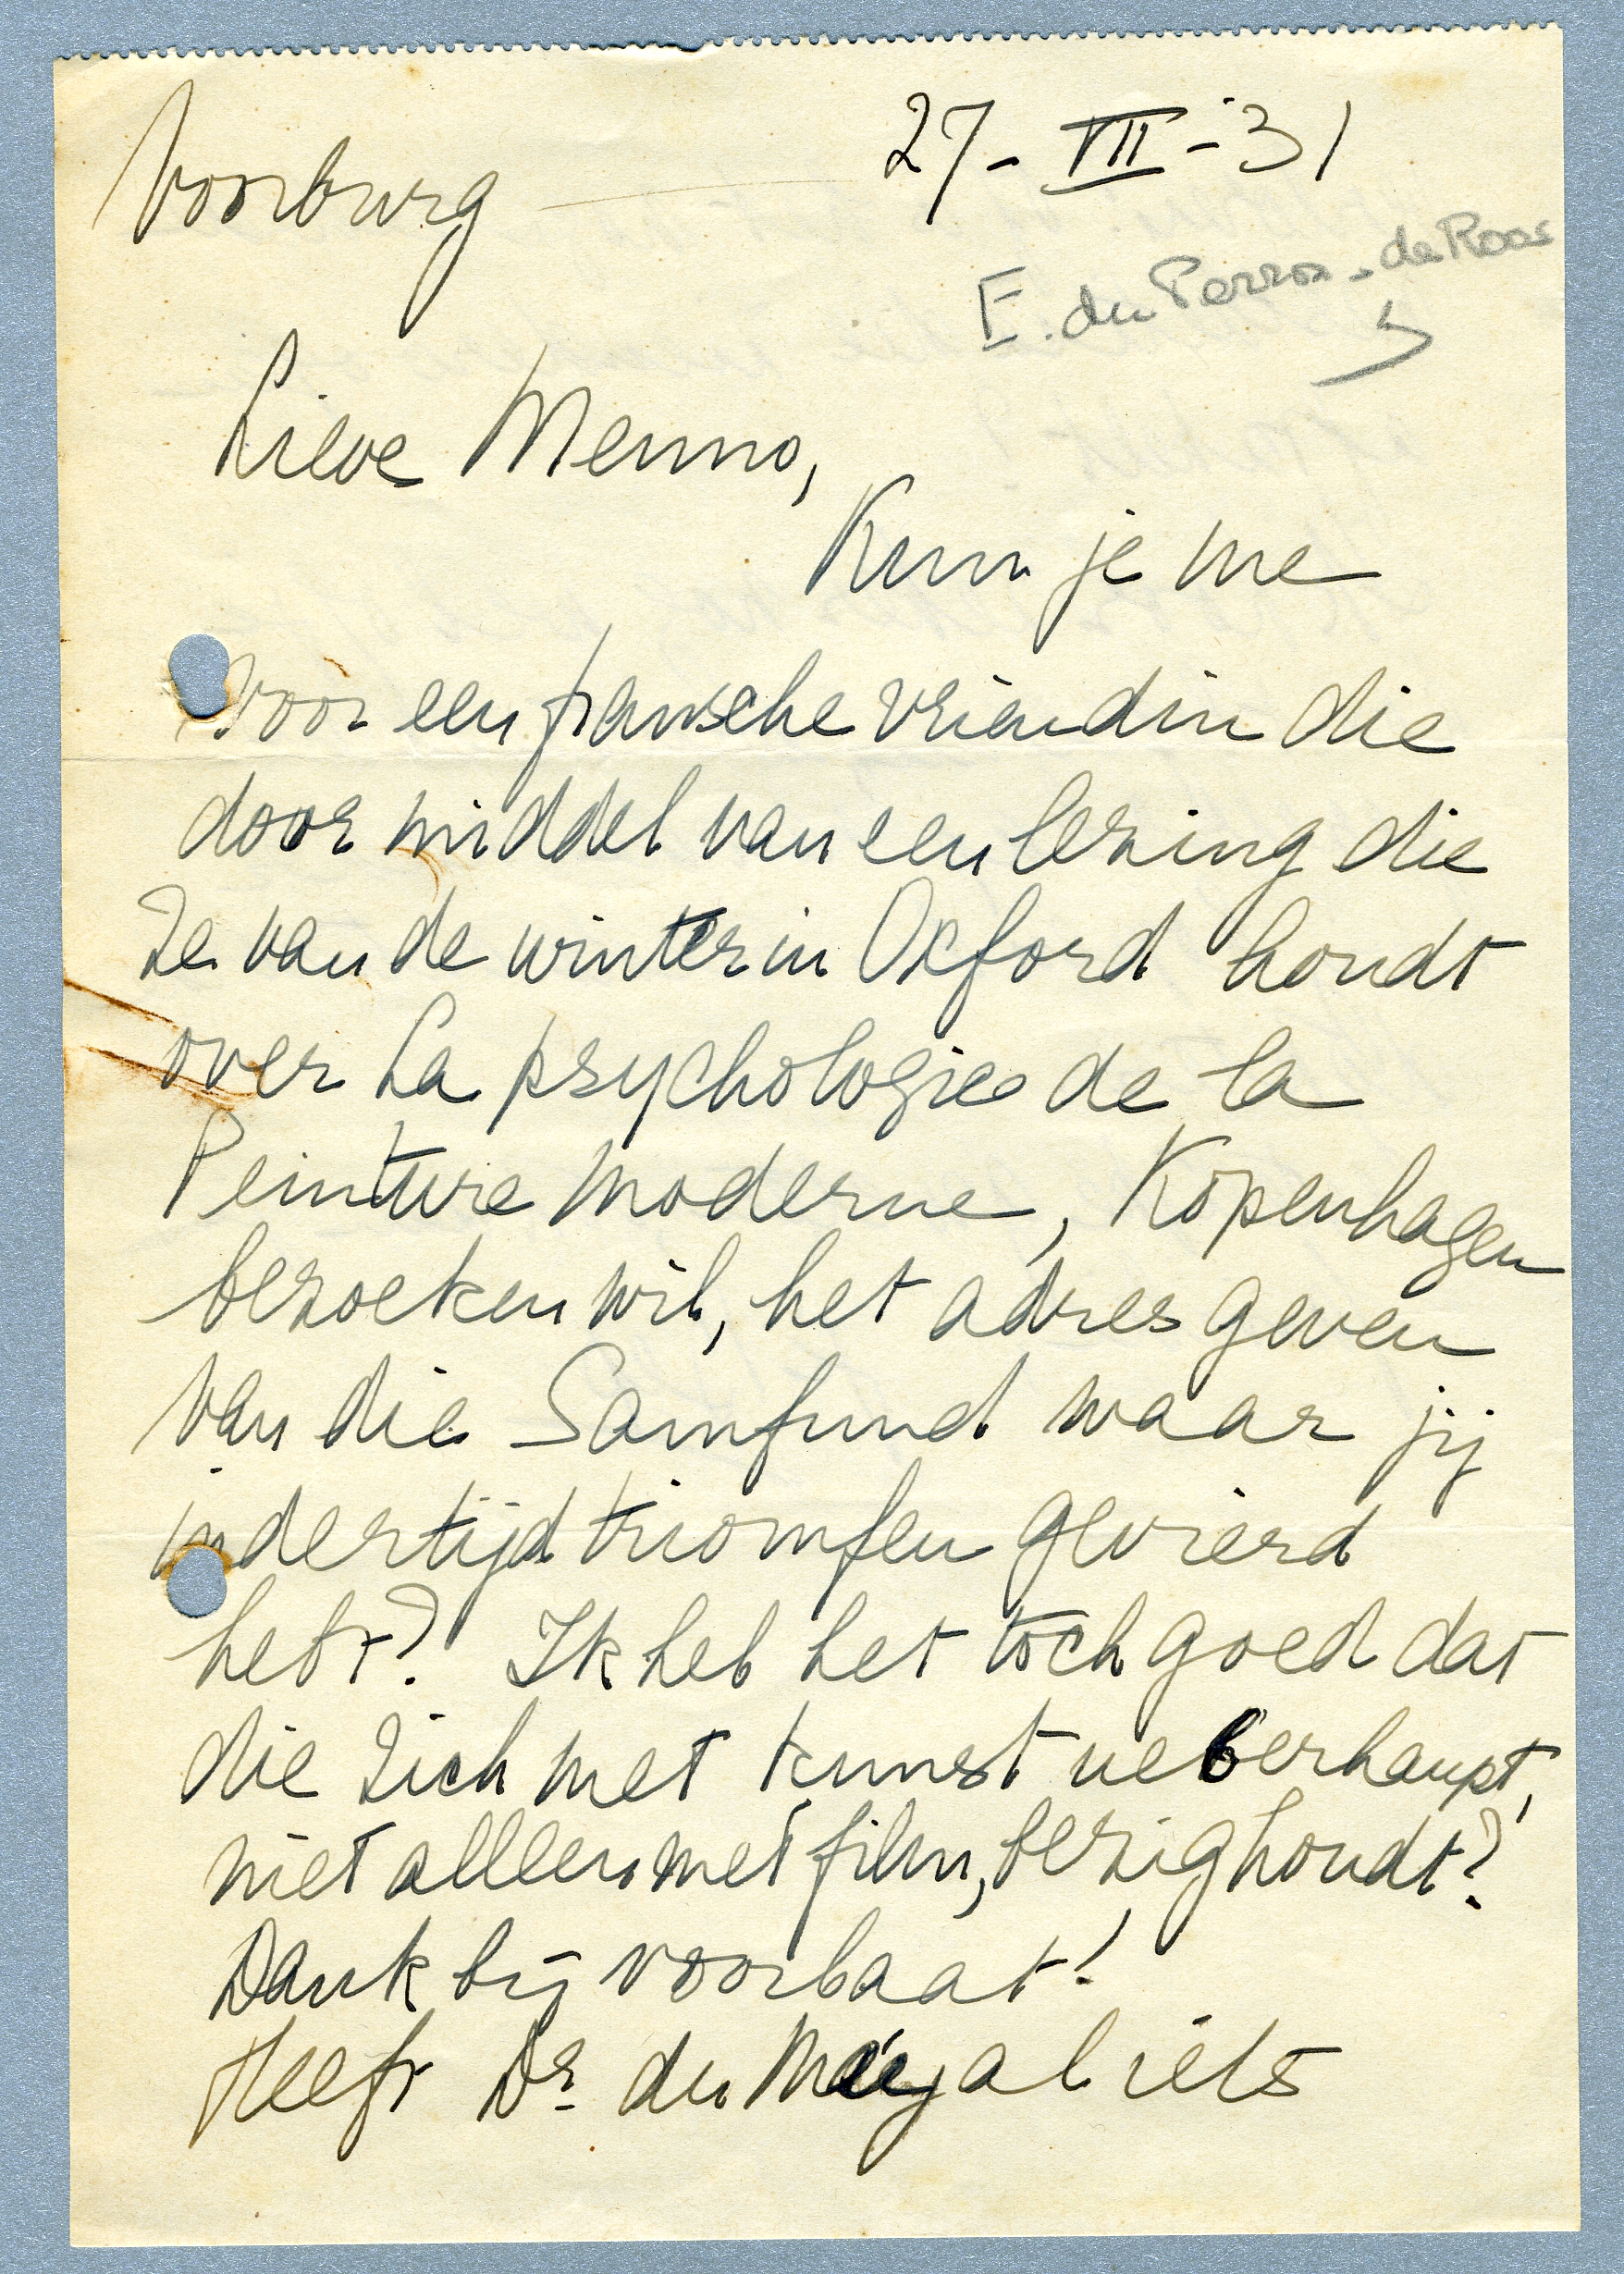 Voorburg 27-VII-31
E. du Perron-de Roos
Lieve Menno,
Kun je me
voor een fransche vriendin die
door middel van een lezing die
ze van de winter in Oxford houdt
over La psychologie de la
Peinture Moderne, Kopenhagen
bezoeken wil, het adres geven
van die Samfund waar jij
indertijd triomfen gevierd
hebt? Ik heb het toch goed dat
die zich met kunst ueberhaupt,
niet alleen met film, bezighoudt?
Dank bij voorbaat!
Heeft Dr. du al iets